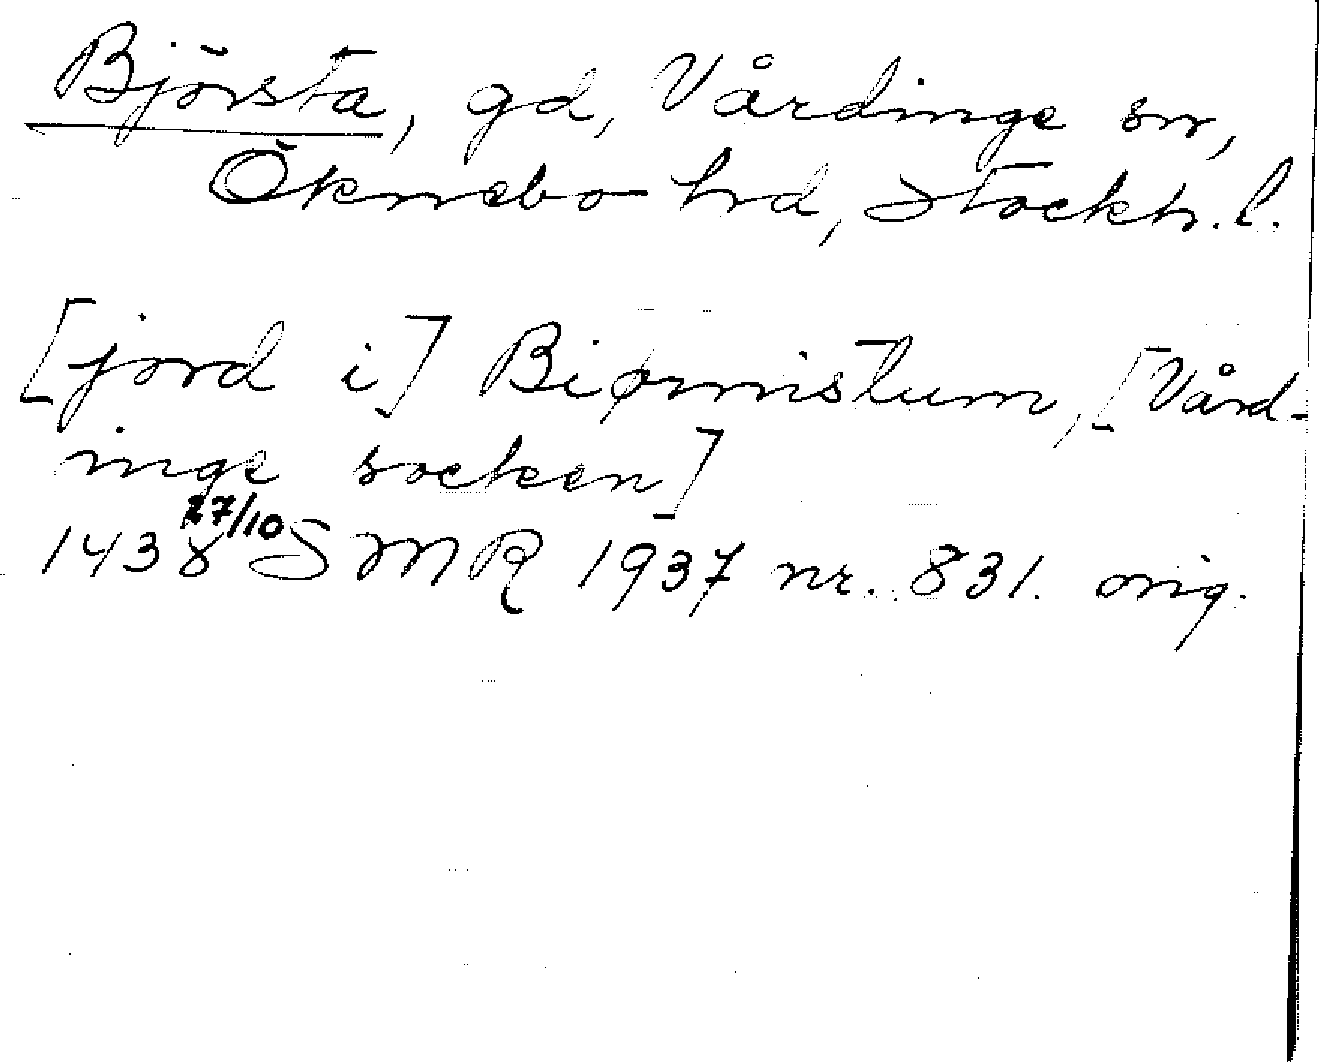 Björsta, gd, Vårdinge sn,
Öknebo hrd, Stockh. l.
[jord i] Biørnistum, [Vård-
inge socken]
1438 27/10 SMR 1937 nr. 831. orig.